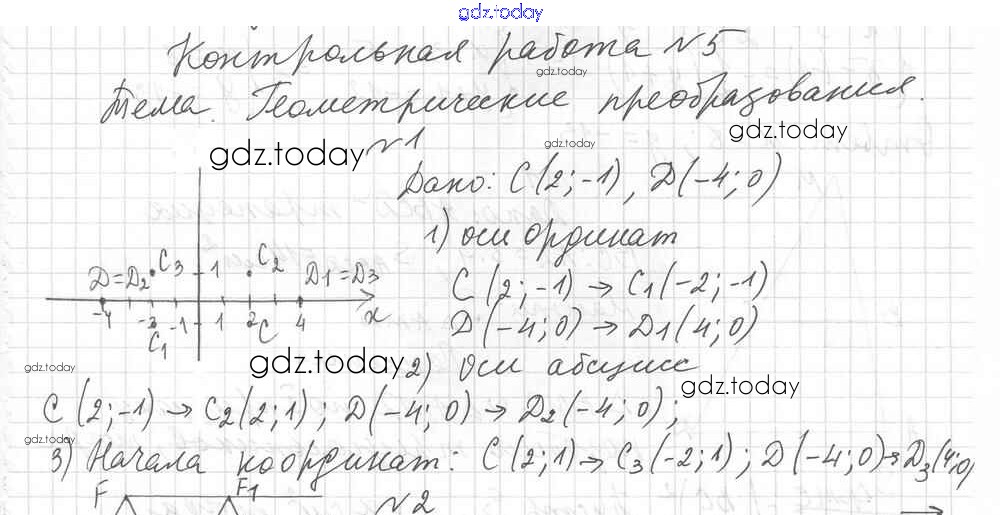 gdz.today
Контрольная работа №5
gdz.today
Тема. Геометрические преобразования.
gdz.today
gdz.today
gdz.today №1
Дано: C(2;-1), D(-4;0)
1) оси ординат
C(2;-1) → C1(-2;-1)
D(-4;0) → D1(4;0)
D=D2 C3 1 C2 D1=D3
-4 -2 -1 1 2 4 x
C1 C
gdz.today
gdz.today 2) Оси абсцисс
gdz.today
C(2;-1) → C2(2;1); D(-4;0) → D2(-4;0);
gdz.today
3) Начала координат: C(2;1) → C3(-2;1); D(-4;0) → D3(4;0)
F F1 №2